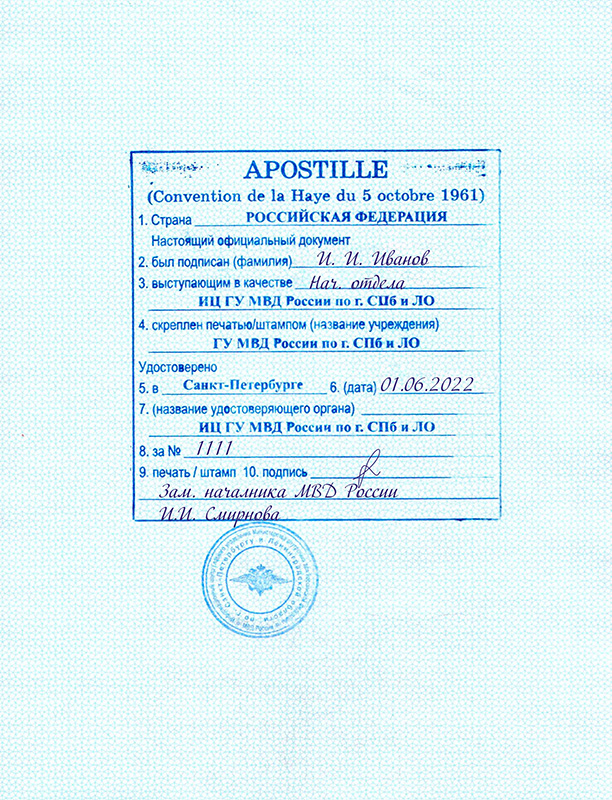 APOSTILLE
(Convention de la Haye du 5 octobre 1961)
1. Страна РОССИЙСКАЯ ФЕДЕРАЦИЯ
Настоящий официальный документ
2. был подписан (фамилия) И. И. Иванов
3. выступающим в качестве Нач. отдела
ИЦ ГУ МВД России по г. СПб и ЛО
4. скреплен печатью/штампом (название учреждения)
ГУ МВД России по г. СПб и ЛО
Удостоверено
5. в Санкт-Петербурге 6. (дата) 01.06.2022
7. (название удостоверяющего органа)
ИЦ ГУ МВД России по г. СПб и ЛО
8. за № 1111
9. печать / штамп 10. подпись
Зам. началника МВД России
И.И. Смирнова
по г. Санкт-Петербургу и Ленинградской области